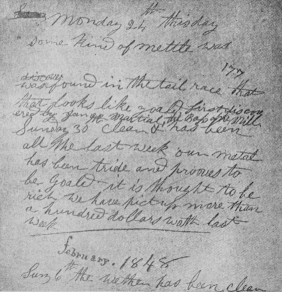 Monday 24th this day
some kind of mettle was
found in the tail race that
that looks like goald first discov
ered by James Martial, the Boss of the Mill
Sunday 30 clear & has been
all the last week our metal
has ben tride and prooves to
be goald it is thought to be
rich we have pict up more than
a hundred dollars woth last
week
February. 1848
Sun 6th the wether has ben clear